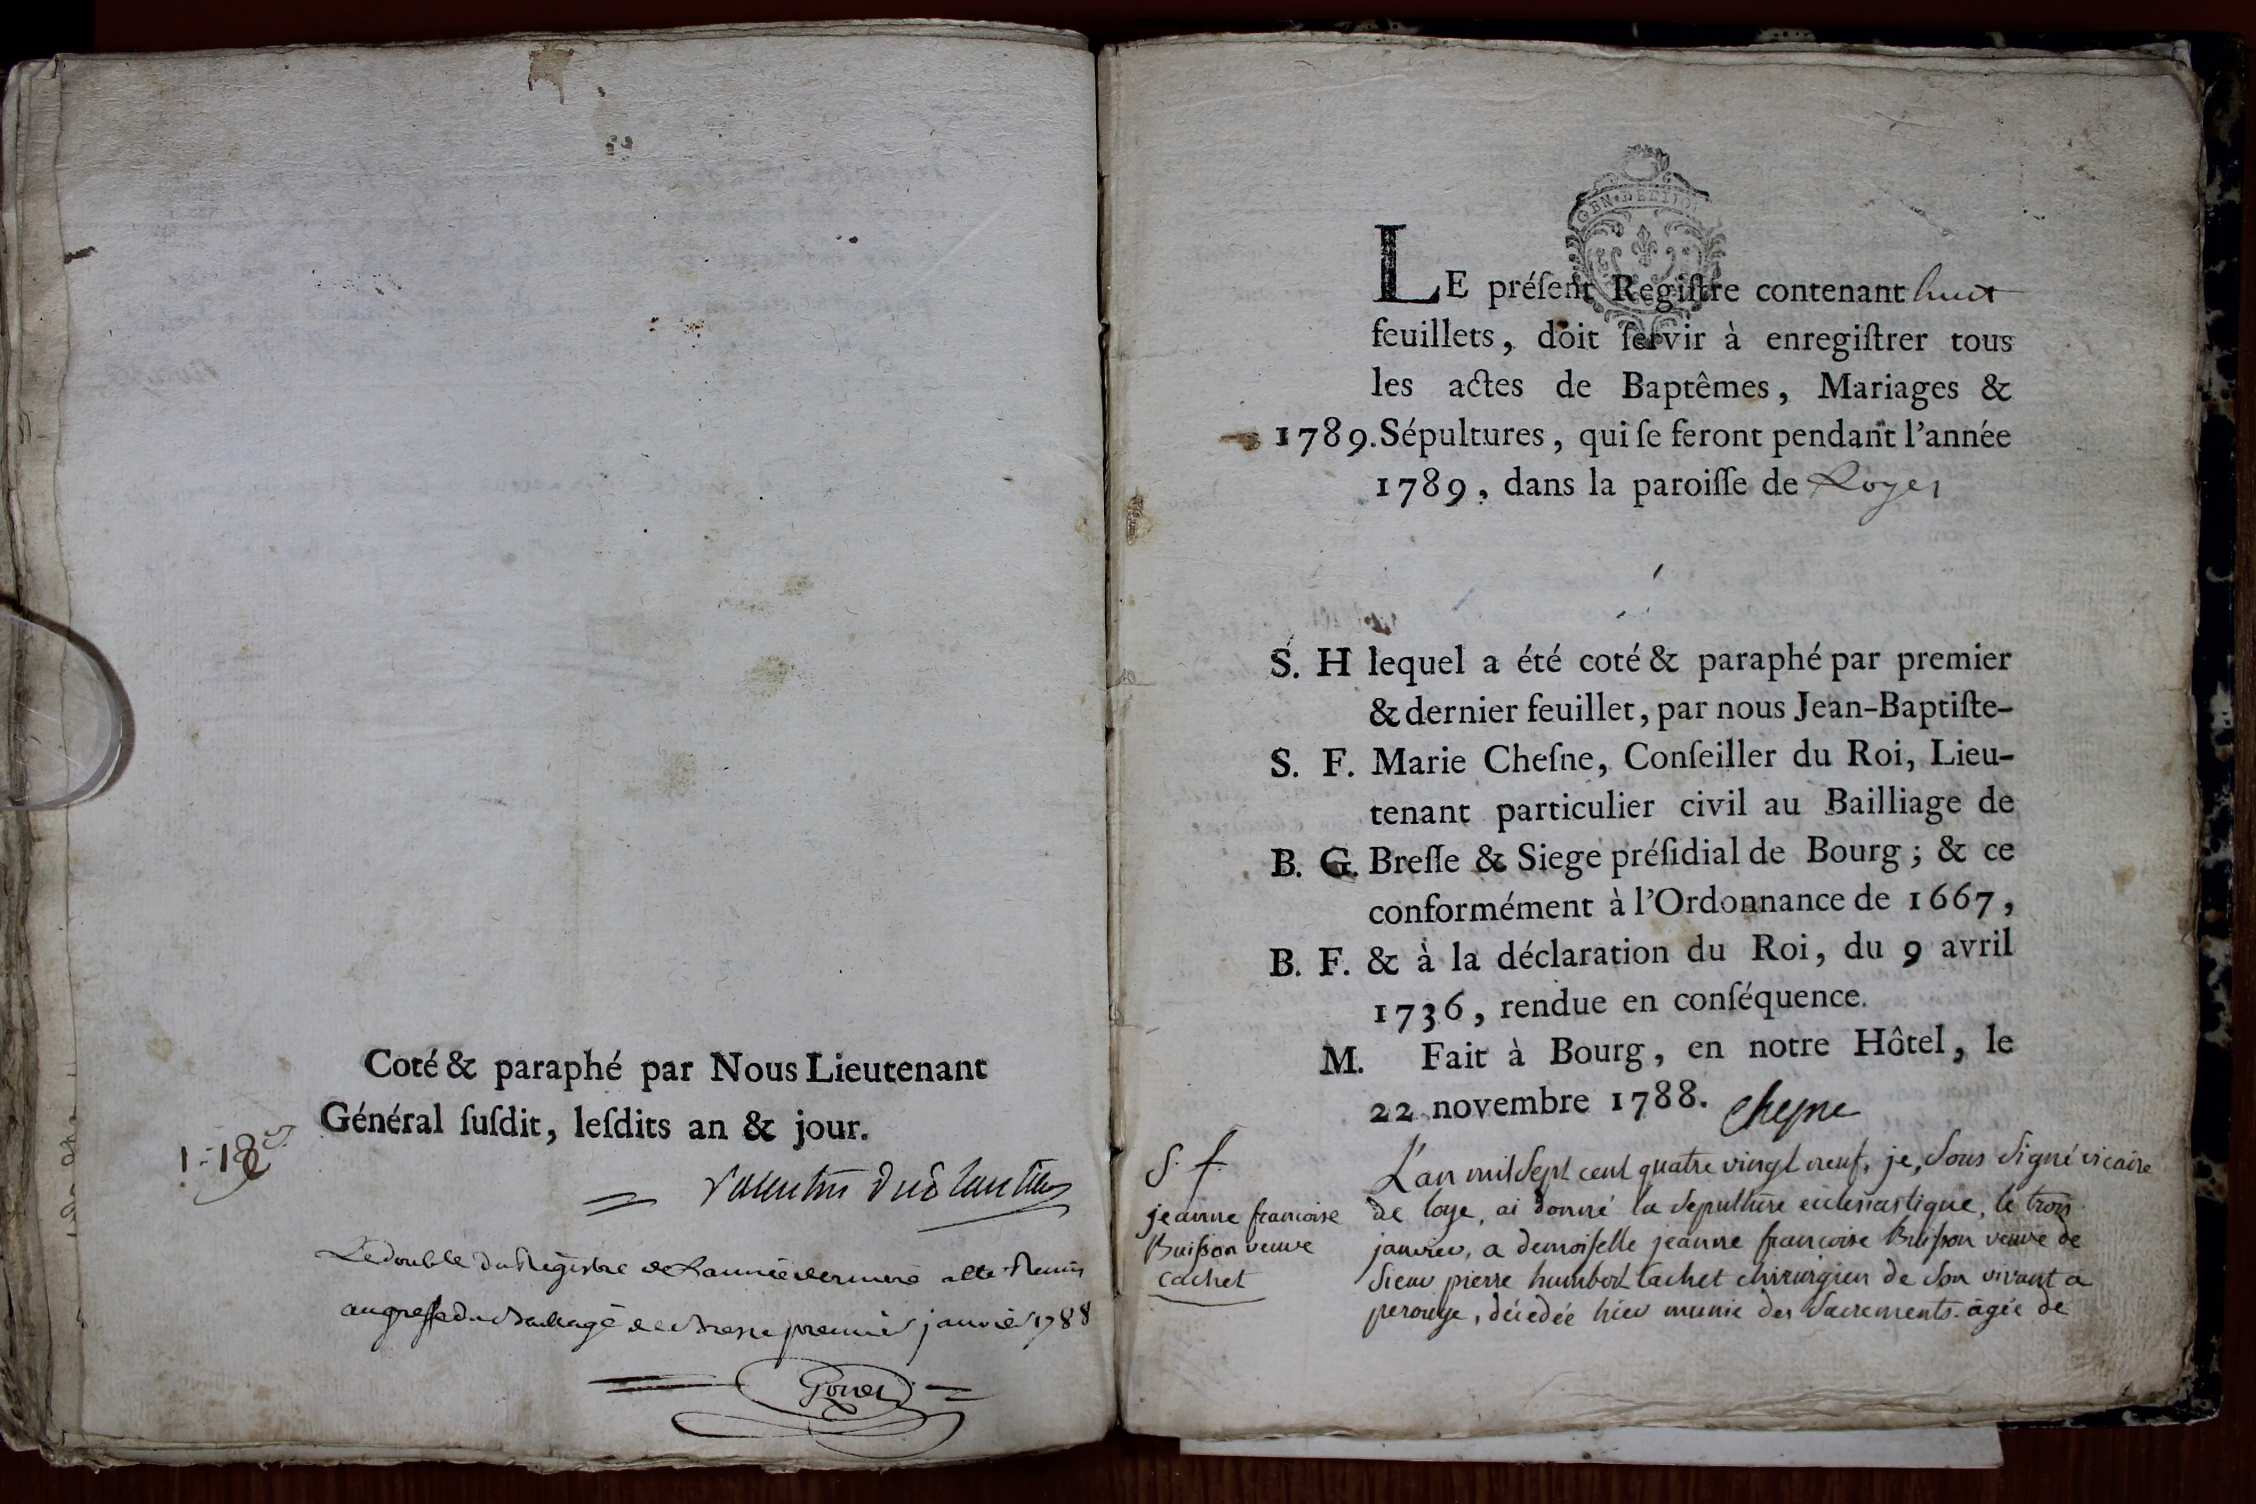 Coté & paraphé par Nous Lieutenant
Général ſuſdit, leſdits an & jour.
Le double du Registre de L'année derniere a été Remis
au greffe du Bailliage de Bresse premier janvier 1788
GEN·DE
LE préſent Regiſtre contenant huit
feuillets, doit ſervir à enregiſtrer tous
les actes de Baptêmes, Mariages &
1789. Sépultures, qui ſe feront pendant l'année
1789, dans la paroiſſe de Loyes
S. H lequel a été coté & paraphé par premier
& dernier feuillet, par nous Jean-Baptiſte-
S. F. Marie Cheſne, Conſeiller du Roi, Lieu-
tenant particulier civil au Bailliage de
B. G. Breſſe & Siege préſidial de Bourg; & ce
conformément à l'Ordonnance de 1667,
B. F. & à la déclaration du Roi, du 9 avril
1736, rendue en conſéquence.
M. Fait à Bourg, en notre Hôtel, le
22 novembre 1788. Chesne
S. f.
jeanne francoise
Buisson veuve
cachet
L'an mil sept cent quatre vingt neuf, je, sous signé vicaire
de loye, ai donné la sepulture ecclesiastique, le trois
janvier, a demoiselle jeanne francoise Buisson veuve de
sieur pierre humbert cachet chirurgien de son vivant a
perouge, décedée hier munie des sacrements. agée de